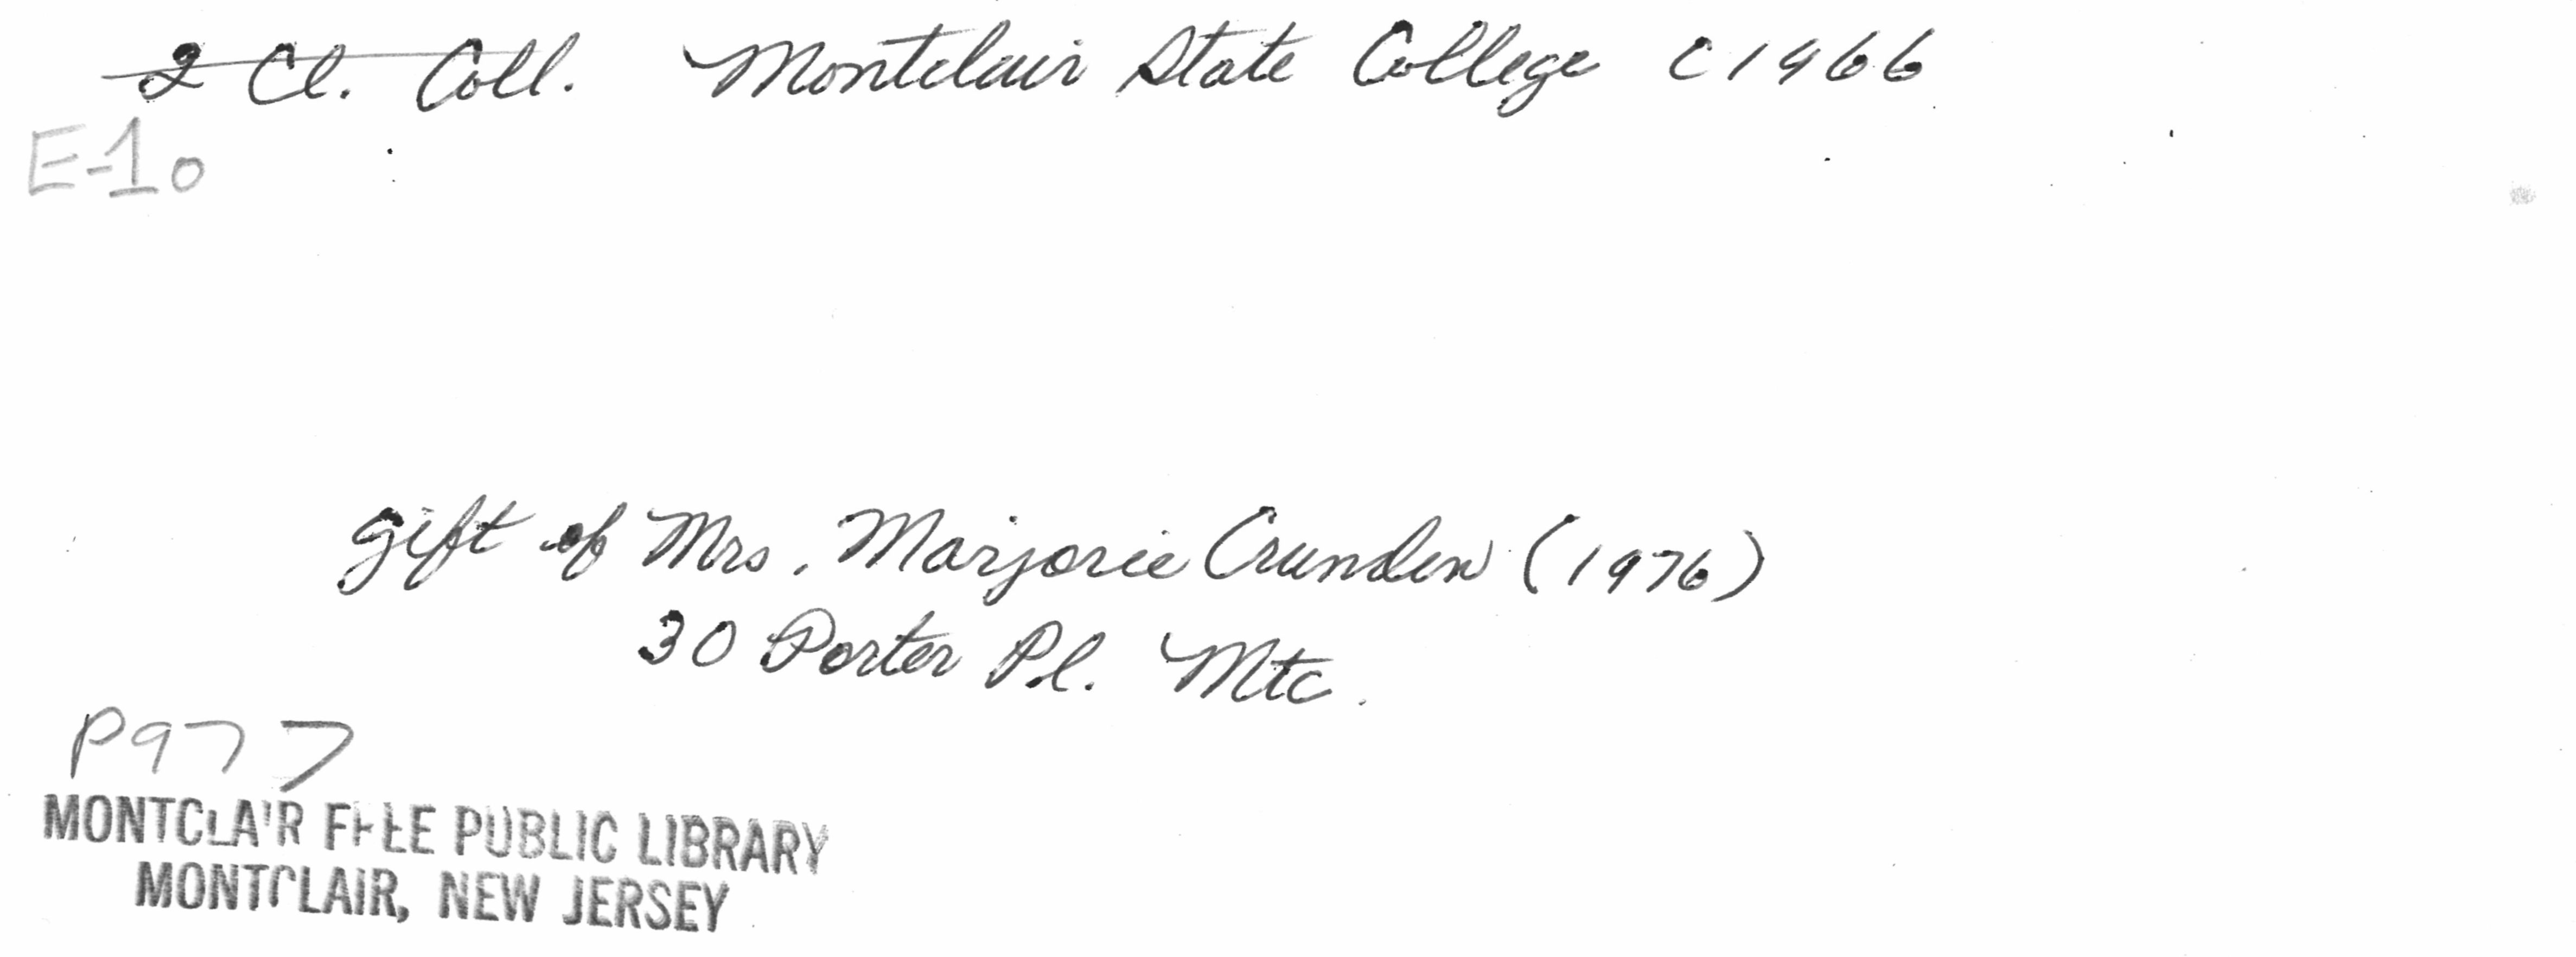 2 Cl. Coll. Montclair State College C1966
E-10
gift of Mrs. Marjorie Crunden (1976)
30 Porter Pl. Mtc.
P977
MONTCLAIR FREE PUBLIC LIBRARY
MONTCLAIR, NEW JERSEY